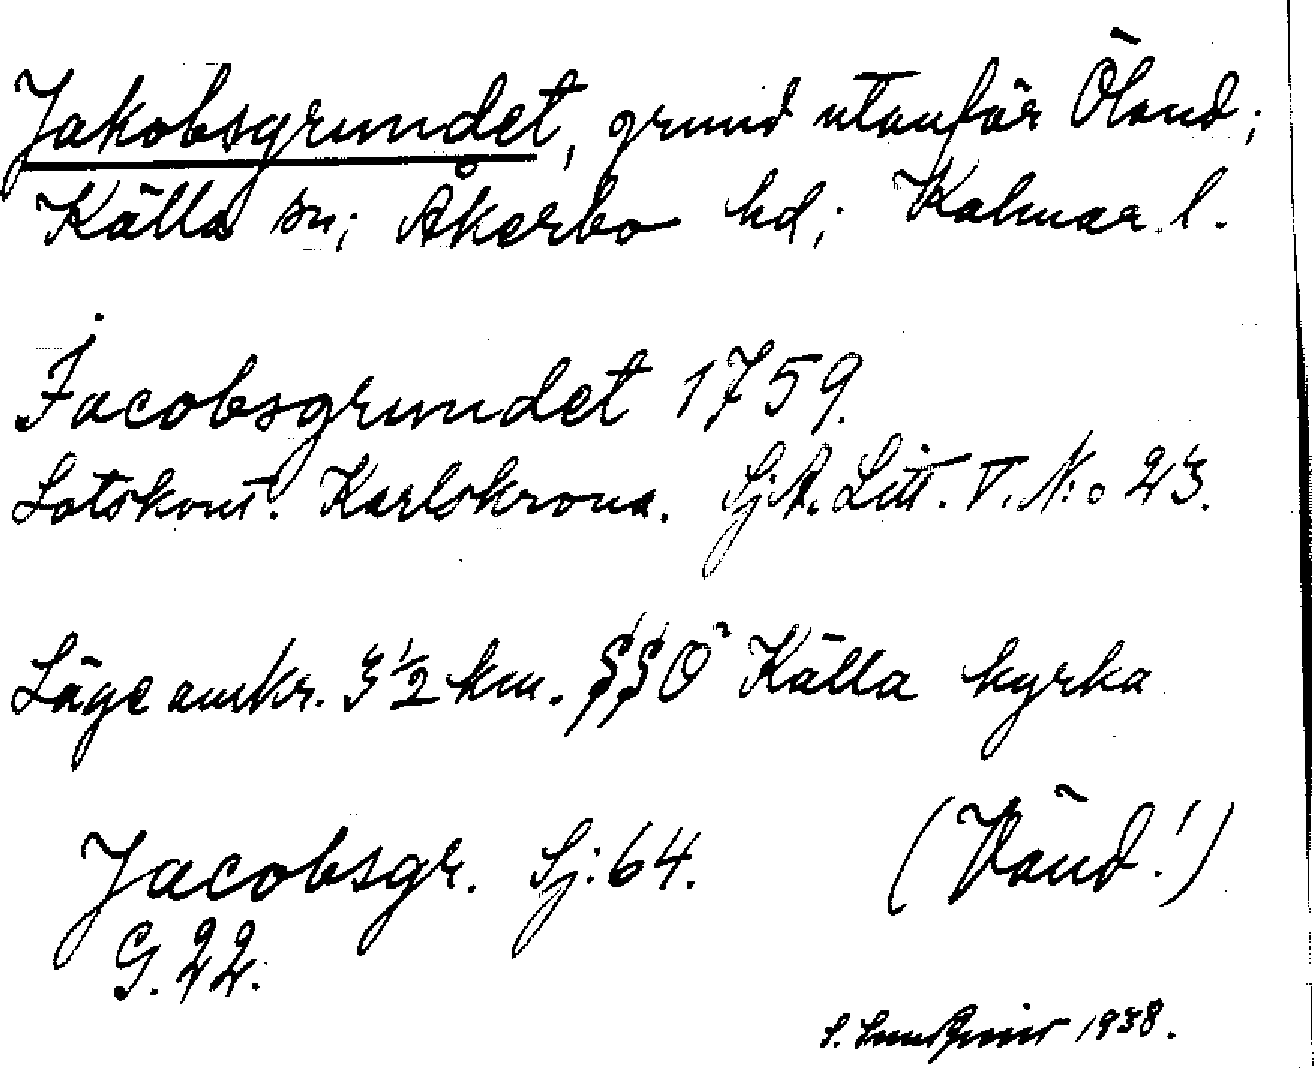 Jakobsgrundet, grund utanför Öland;
Källa sn; Åkerbo hd; Kalmar l.
Jacobsgrundet 1759.
Lotskont. Karlskrona. Sj.A. Litt. V. N:o 23.
Läge omkr. 3 1/2 km. SSO Källa kyrka
Jacobsgr. Sj: 64. (Vänd!)
G. 22.
S. 1938.